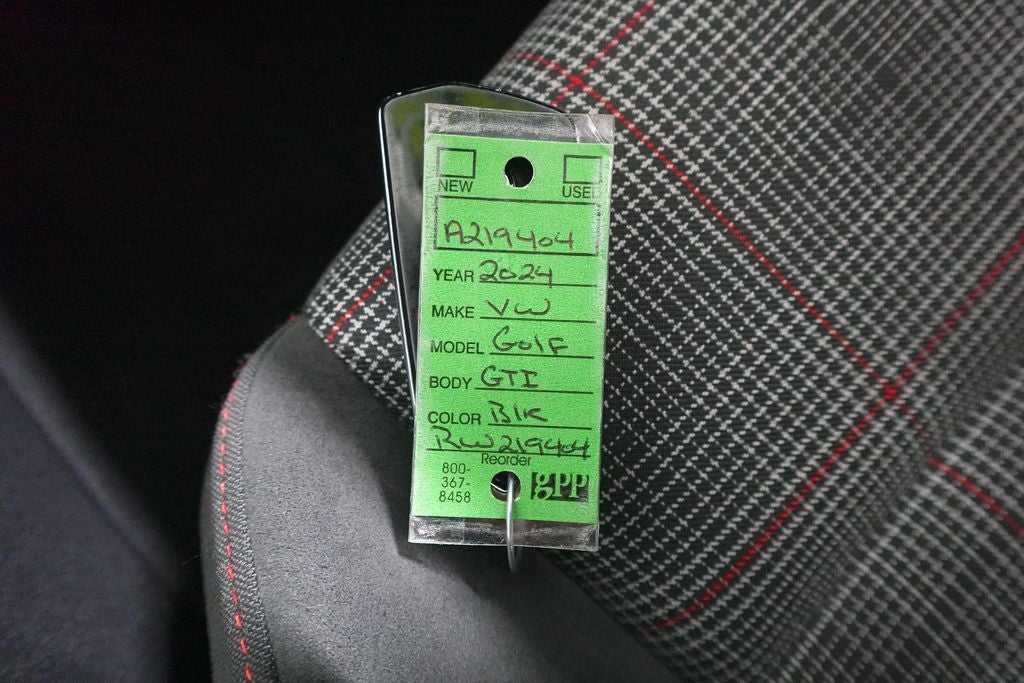 NEW USED
A219404
YEAR 2024
MAKE VW
MODEL GolF
BODY GTI
COLOR Blk
RW219404
Reorder
800-
367-
8458
gPP